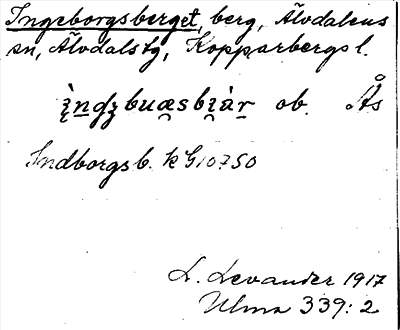 Ingeborgsberget, berg, Älvdalens
sn, Älvdals tg, Kopparbergs l.
ob. Ås
Indborgsb. k G10750
L. Levander 1917
Ulma 339: 2